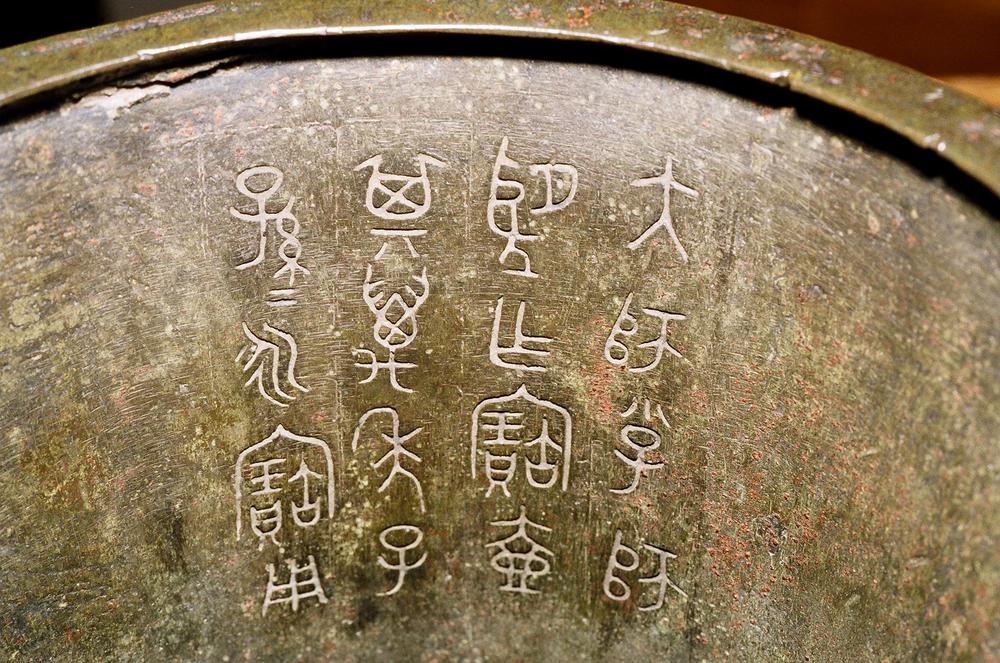 大師小子師
朢乍寶壺
其萬年子
孫=永寶用